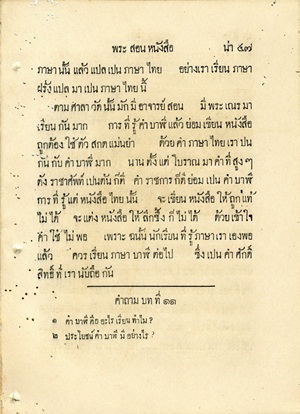 พระ สอน หนังสือ น่า ๔๗
ภาษา นั้น แล้ว แปล เปน ภาษา ไทย อย่างเรา เรียน ภาษา
ฝรั่ง แปล มา เปน ภาษา ไทย นี้
ตาม ศาลา วัด นั้น มัก มี อาจารย์ สอน มี พระ เณร มา
เรียน กัน มาก การ ที่ รู้ คำ บาฬี แล้ว ย่อม เขียน หนังสือ
ถูกต้อง ใช้ ตัว สกด แม่นยำ ด้วย คำ ภาษา ไทย เรา ปน
กัน กับ คำ บาฬี มาก นาน ตั้ง แต่ โบราณ มา คำ ที่ สูง ๆ
ดัง ราชาศัพท์ เปนต้น ก็ดี คำ ราชการ ก็ดี ย่อม เปน คำ บาฬี
การ ที่ รู้ แต่ หนังสือ ไทย นั้น จะ เขียน หนังสือ ให้ ถูก แท้
ไม่ ได้ จะ แต่ง หนังสือ ให้ ลึกซึ้ง ก็ ไม่ ได้ ด้วย เข้าใจ
คำ ใช้ ไม่ พอ เพราะ ฉนั้น นักเรียน ที่ รู้ ภาษา เรา เอง พอ
แล้ว ควร เรียน ภาษา บาฬี ต่อไป ซึ่ง เปน คำ ศักดิ์
สิทธิ์ ที่ เรา นับถือ กัน
คำถาม บท ที่ ๑๑
๑ คำ บาฬี คือ อะไร เรียน ทำไม ?
๒ ประโยชน์ คำ บาฬี มี อย่างไร ?